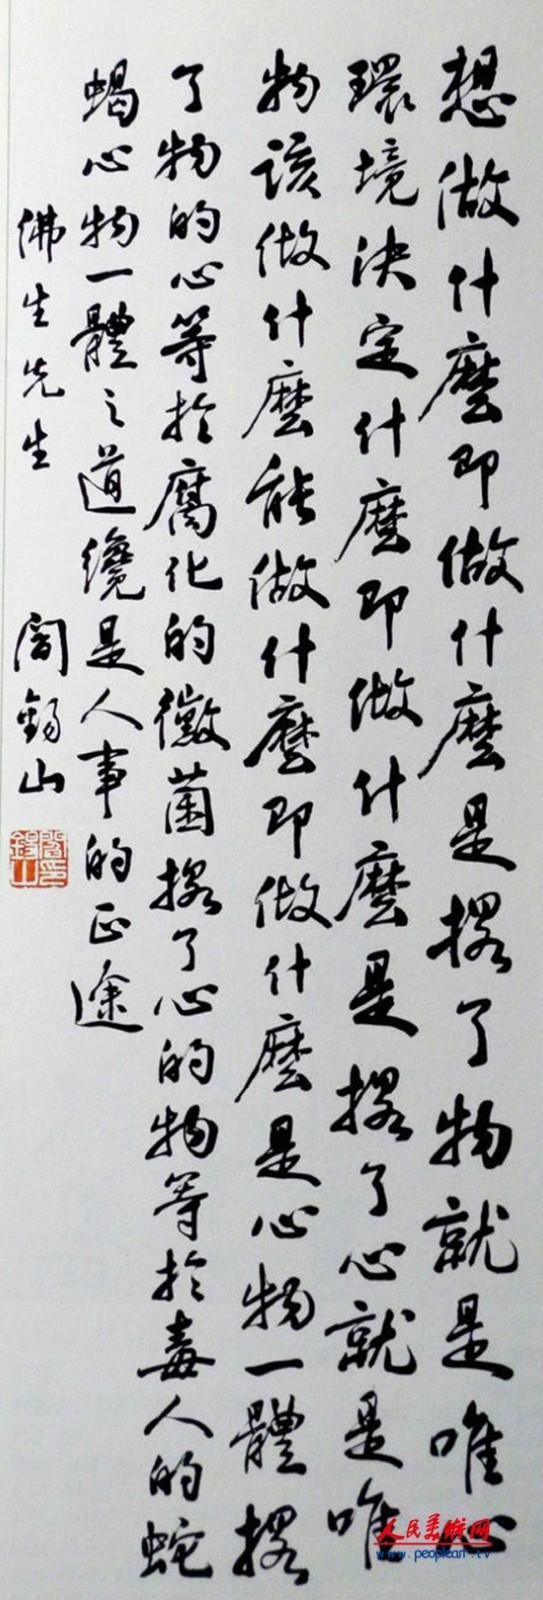 想做什麼即做什麼是撂了物就是唯心
環境決定什麼即做什麼是撂了心就是唯
物該做什麼能做什麼即做什麼是心物一體撂
了物的心等於腐化的黴菌撂了心的物等於毒人的蛇
蝎心物一體之道纔是人事的正途
佛生先生 閻錫山
閻錫山印
人民美術网
www.peopleart.tv